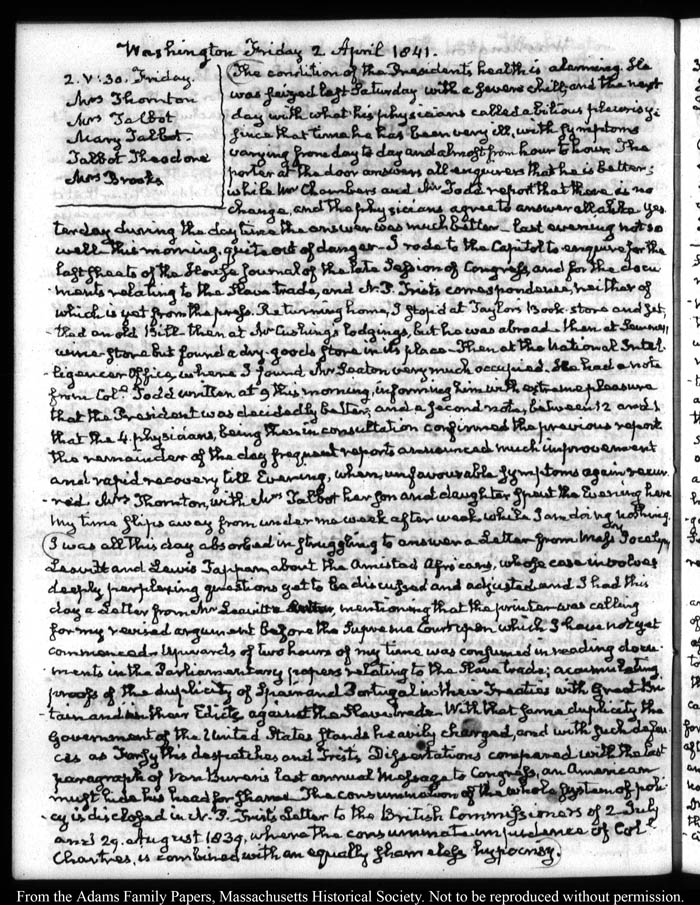 Washington Friday 2 April 1841.
2. V:30. Friday.
Mrs Thornton
Mrs Talbot
Mary Talbot.
Talbot Theodore
Mrs Brooks
The condition of the Presidents health is alarming. He
was seized last Saturday with a severe chill, and the next
day with what his physicians called a bilious pleurisy:
since that time he has been very ill, with symptoms
varying from day to day and almost from hour to hour. The
porter at the door answers all enquirers that he is better;
while Mr Chambers and Mr Todd report that there is no
change, and the physicians agree to answer all alike Yes
terday during the day time the answer was much better—last evening not so
well. This morning, quite out of danger—I rode to the Capitol to enquire for the
last sheets of the House Journal of the late Session of Congress, and for the docu
-ments relating to the Slave trade, and N. P. Trists correspondence, neither of
which is yet from the press. Returning home, I stop'd at Taylors Book-store and set
tled an old Bill—then at Mr Cushing's lodgings, but he was abroad—then at
wine-store but found a dry-goods store in its place—Then at the National Intel
-ligencer Office, where I found Mr Seaton very much occupied. He had a note
from Col. Todd written at 9 this morning, informing him with extreme pleasure
that the President was decidedly better, and a second note, between 12 and 1
that the 4 physicians, being then in consultation confirmed the previous report
the remainder of the day frequent reports announced much improvement
and rapid recovery till Evening, when unfavourable symptoms again recur
-red. Mrs Thornton, with Mrs Talbot her son and daughter spent the Evening here
My time slips away from under me week after week while I am doing nothing.
I was all this day absorbed in struggling to answer a Letter from Messrs Jocelyn,
Leavitt and Lewis Tappan, about the Amistad Africans, whose case involves
deeply perplexing questions yet to be discussed and adjusted and I had this
day a Letter from Mr Leavitt mentioning that the printer was calling
for my revised argument before the Supreme Court upon which I have not yet
commenced. Upwards of two hours of my time was consumed in reading docu
-ments in the Parliamentary papers relating to the Slave trade; accumulating
proofs of the duplicity of Spain and Portugal in their Treaties with Great Bri
-tain and in their Edicts against the Slave trade. With that same duplicity the
Government of the United States stands heavily charged, and with such defen
-ces as Forsyths despatches and Trists Dissertations compared with the last
paragraph of Van Burens last annual Message to Congress, an American
must hide his head for shame. The consummation of the whole system of poli
-cy is disclosed in N. P. Trists Letter to the British Commissioners of 2. July
and 29. August 1839, where the consummate impudence of Col.
Chartres, is combined with an equally shameless hypocrisy.
From the Adams Family Papers, Massachusetts Historical Society. Not to be reproduced without permission.